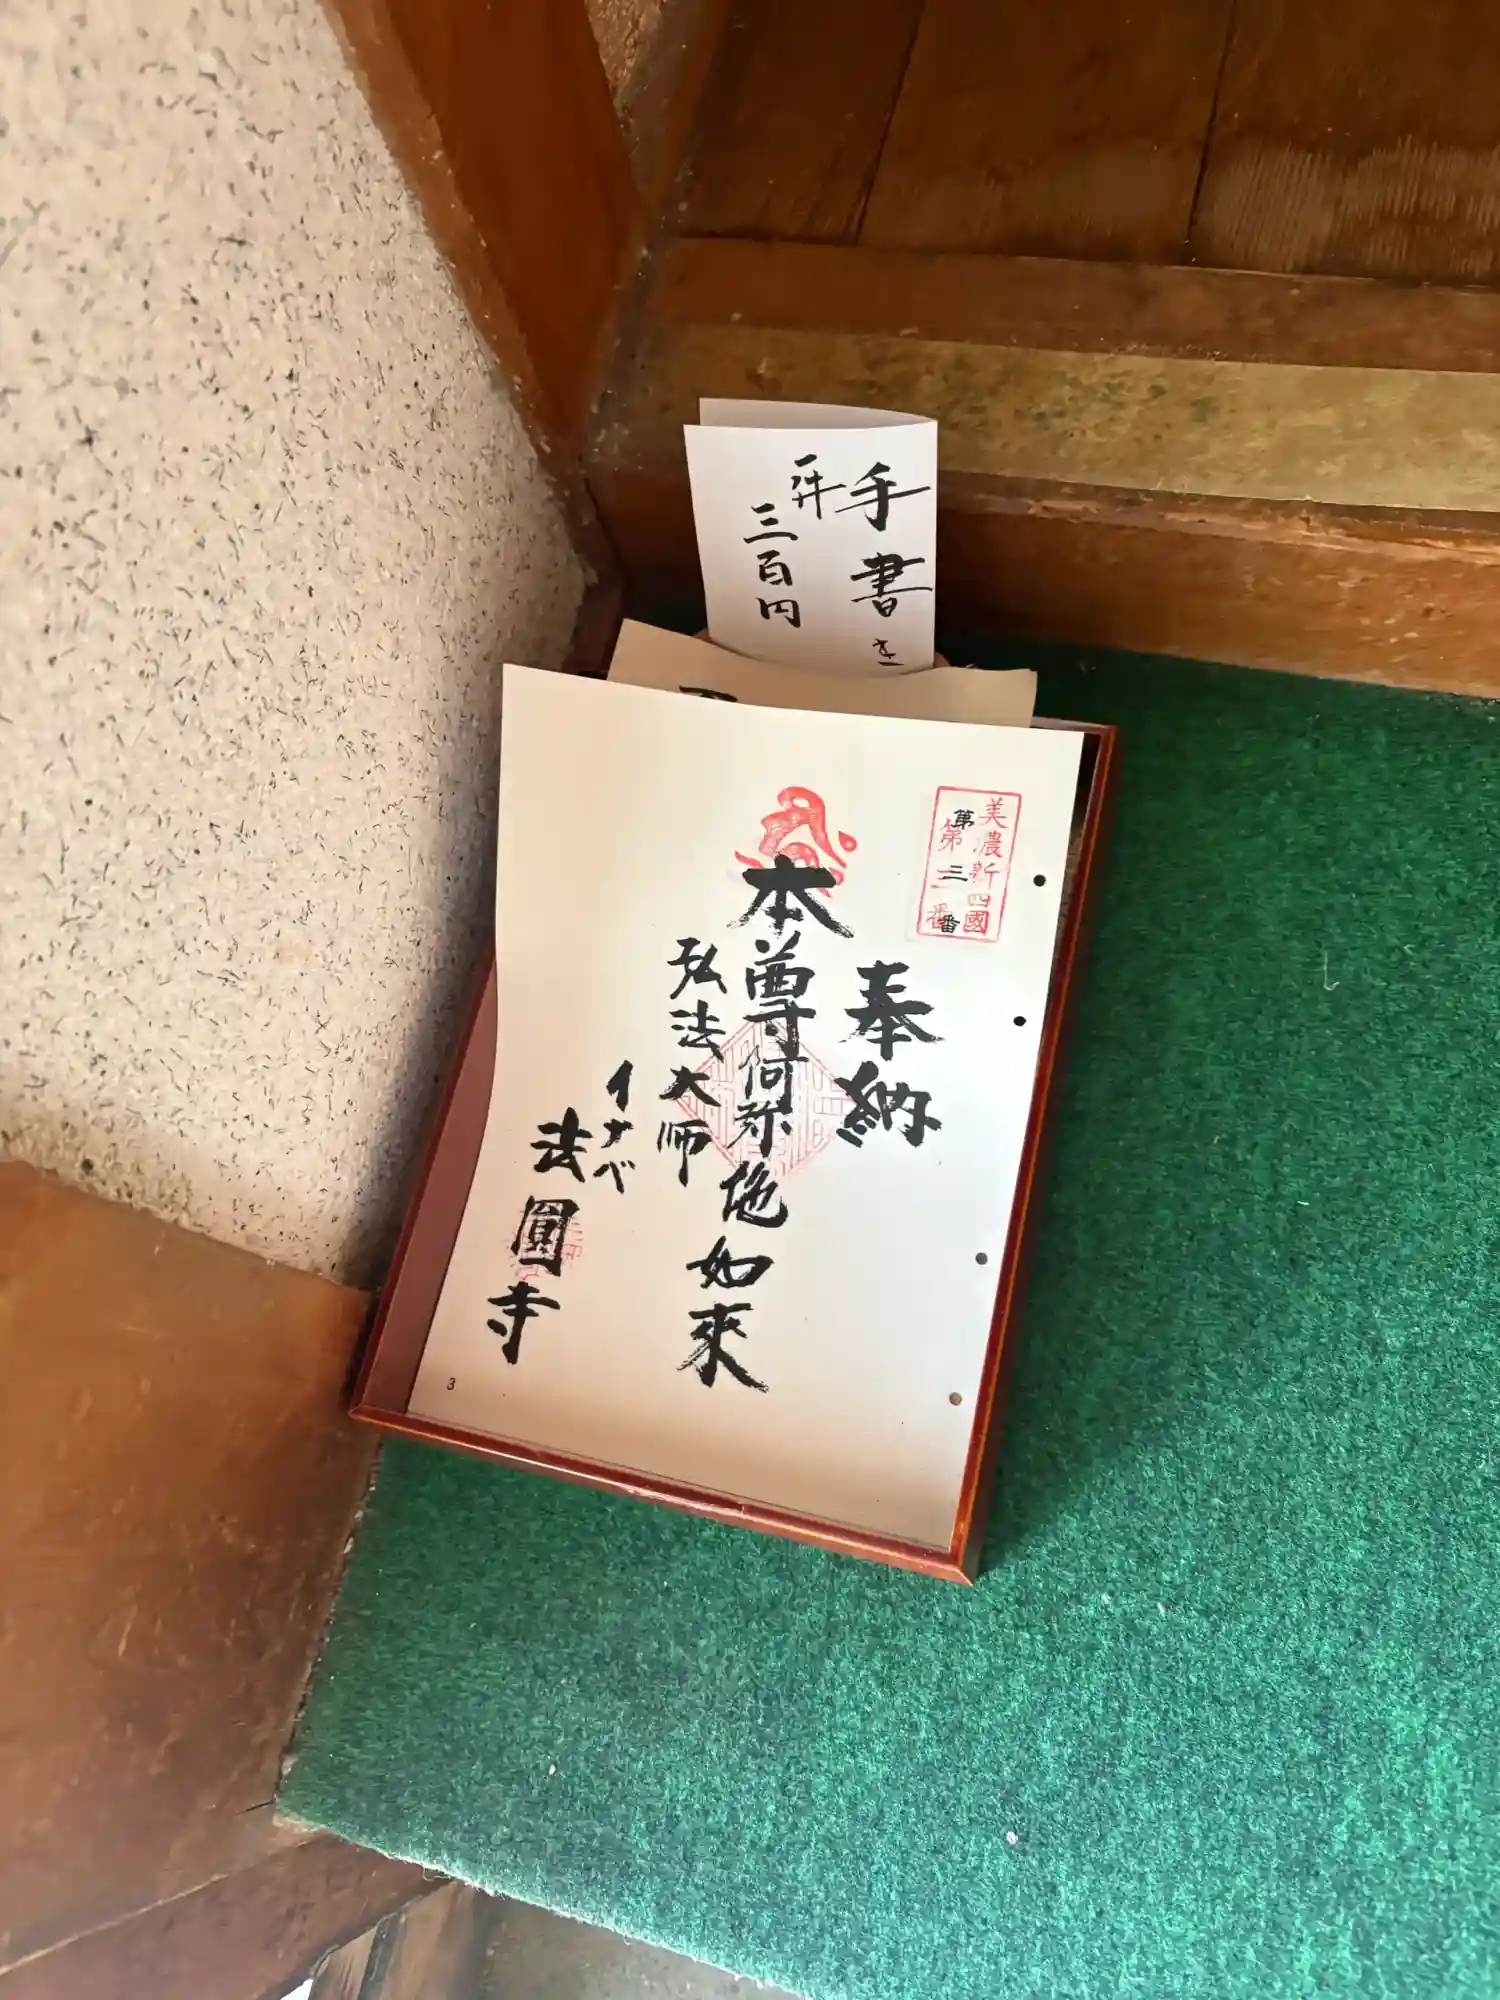 手書き
一件
三百円
美濃新四國
第三番
奉納
本尊阿弥陀如來
弘法大师
イナベ
法圓寺
3